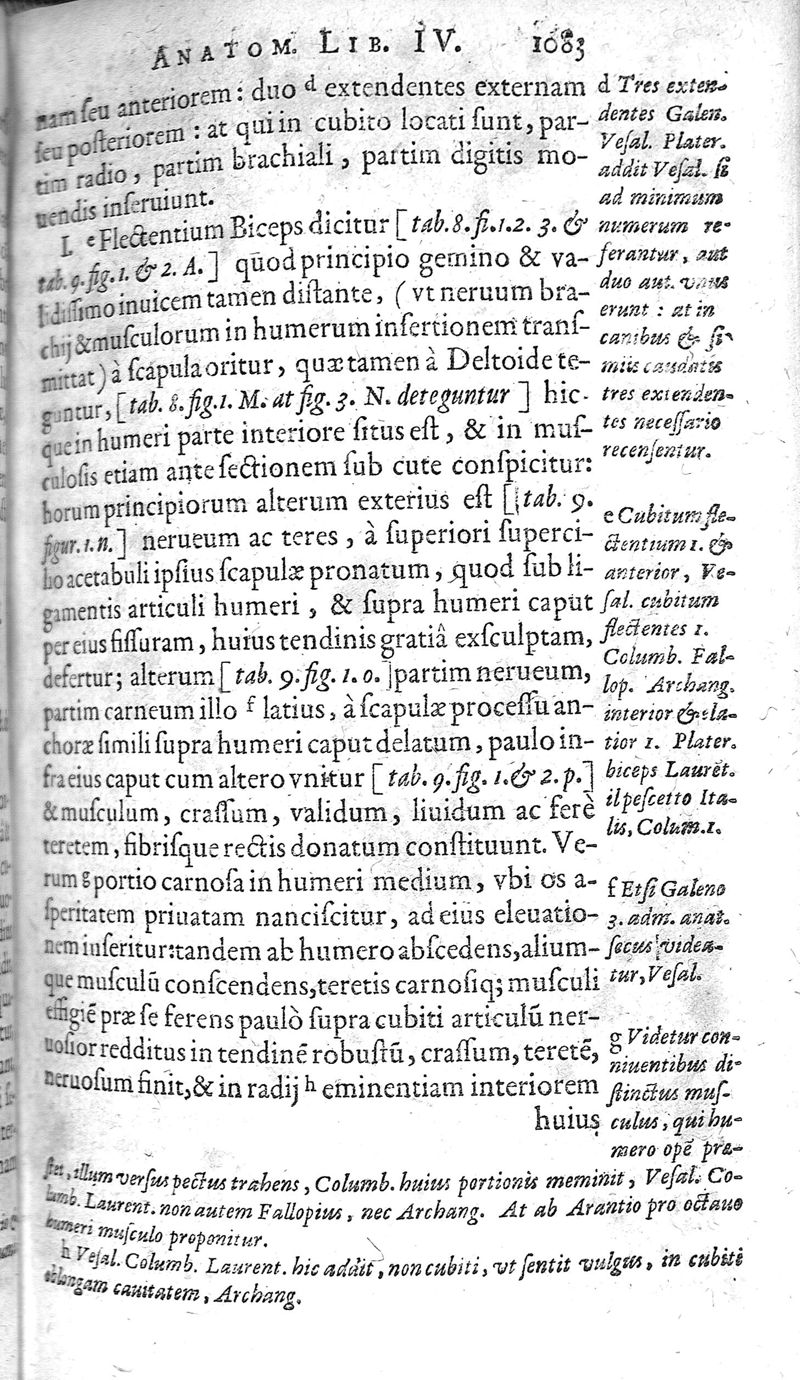 ANATOM. LIB. IV. 1083
nam seu anteriorem: duo d extendentes externam
seu posteriorem: at qui in cubito locati sunt, par-
tim radio, partim brachiali, partim digitis mo-
uendis inseruiunt.
I. e Flectentium Biceps dicitur [tab. 8. fi. 1. 2. 3. &
tab. 9. fig. 1. & 2. A.] quòd principio gemino & va-
lidissimo inuicem tamen distante, (vt neruum bra-
chij & musculorum in humerum insertionem trans-
mittat) à scapula oritur, quæ tamen à Deltoide te-
guntur, [tab. 8. fig. 1. M. at fig. 3. N. deteguntur] hic-
que in humeri parte interiore situs est, & in mus-
culosis etiam ante sectionem sub cute conspicitur:
horum principiorum alterum exterius est [tab. 9.
figur. 1. n.] nerueum ac teres, à superiori superci-
lio acetabuli ipsius scapulæ pronatum, quod sub li-
gamentis articuli humeri, & supra humeri caput
per eius fissuram, huius tendinis gratiâ exsculptam,
defertur; alterum [tab. 9. fig. 1. o.] partim nerueum,
partim carneum illo f latius, à scapulæ processu an-
choræ simili supra humeri caput delatum, paulo in-
fra eius caput cum altero vnitur [tab. 9. fig. 1. & 2. p.]
& musculum, crassum, validum, liuidum ac ferè
teretem, fibrisque rectis donatum constituunt. Ve-
rum g portio carnosa in humeri medium, vbi os a-
speritatem priuatam nanciscitur, ad eius eleuatio-
nem inseritur: tandem ab humero abscedens, alium-
que musculū conscendens, teretis carnosiq; musculi
effigiē præ se ferens paulò supra cubiti articulū ner-
uosior redditus in tendinē robustū, crassum, teretē,
neruosum finit, & in radij h eminentiam interiorem
huius
d Tres exten-
dentes Galen.
Vesal. Plater.
addit Vesal. si
ad minimum
numerum re-
ferantur, aut
duo aut. vnus
erunt: at in
canibus & si-
miis caudatis
tres extenden-
tes necessario
recensentur.
e Cubitum fle-
ctentium 1. &
anterior, Ve-
sal. cubitum
flectentes 1.
Columb. Fal-
lop. Archang.
interior & ela-
tior 1. Plater.
biceps Laurēt.
il pescetto Ita-
lis, Colum. 1.
f Etsi Galeno
3. adm. anat.
secus videa-
tur, Vesal.
g Videtur con-
niuentibus di-
stinctus mus-
culus, qui hu-
mero opē præ-
stet, illum versus pectus trahens, Columb. huius portionis meminit, Vesal. Co-
lumb. Laurent. non autem Fallopius, nec Archang. At ab Arantio pro octauo
humeri musculo proponitur.
h Vesal. Columb. Laurent. hic addit, non cubiti, vt sentit vulgus, in cubiti
oblongam cauitatem, Archang.